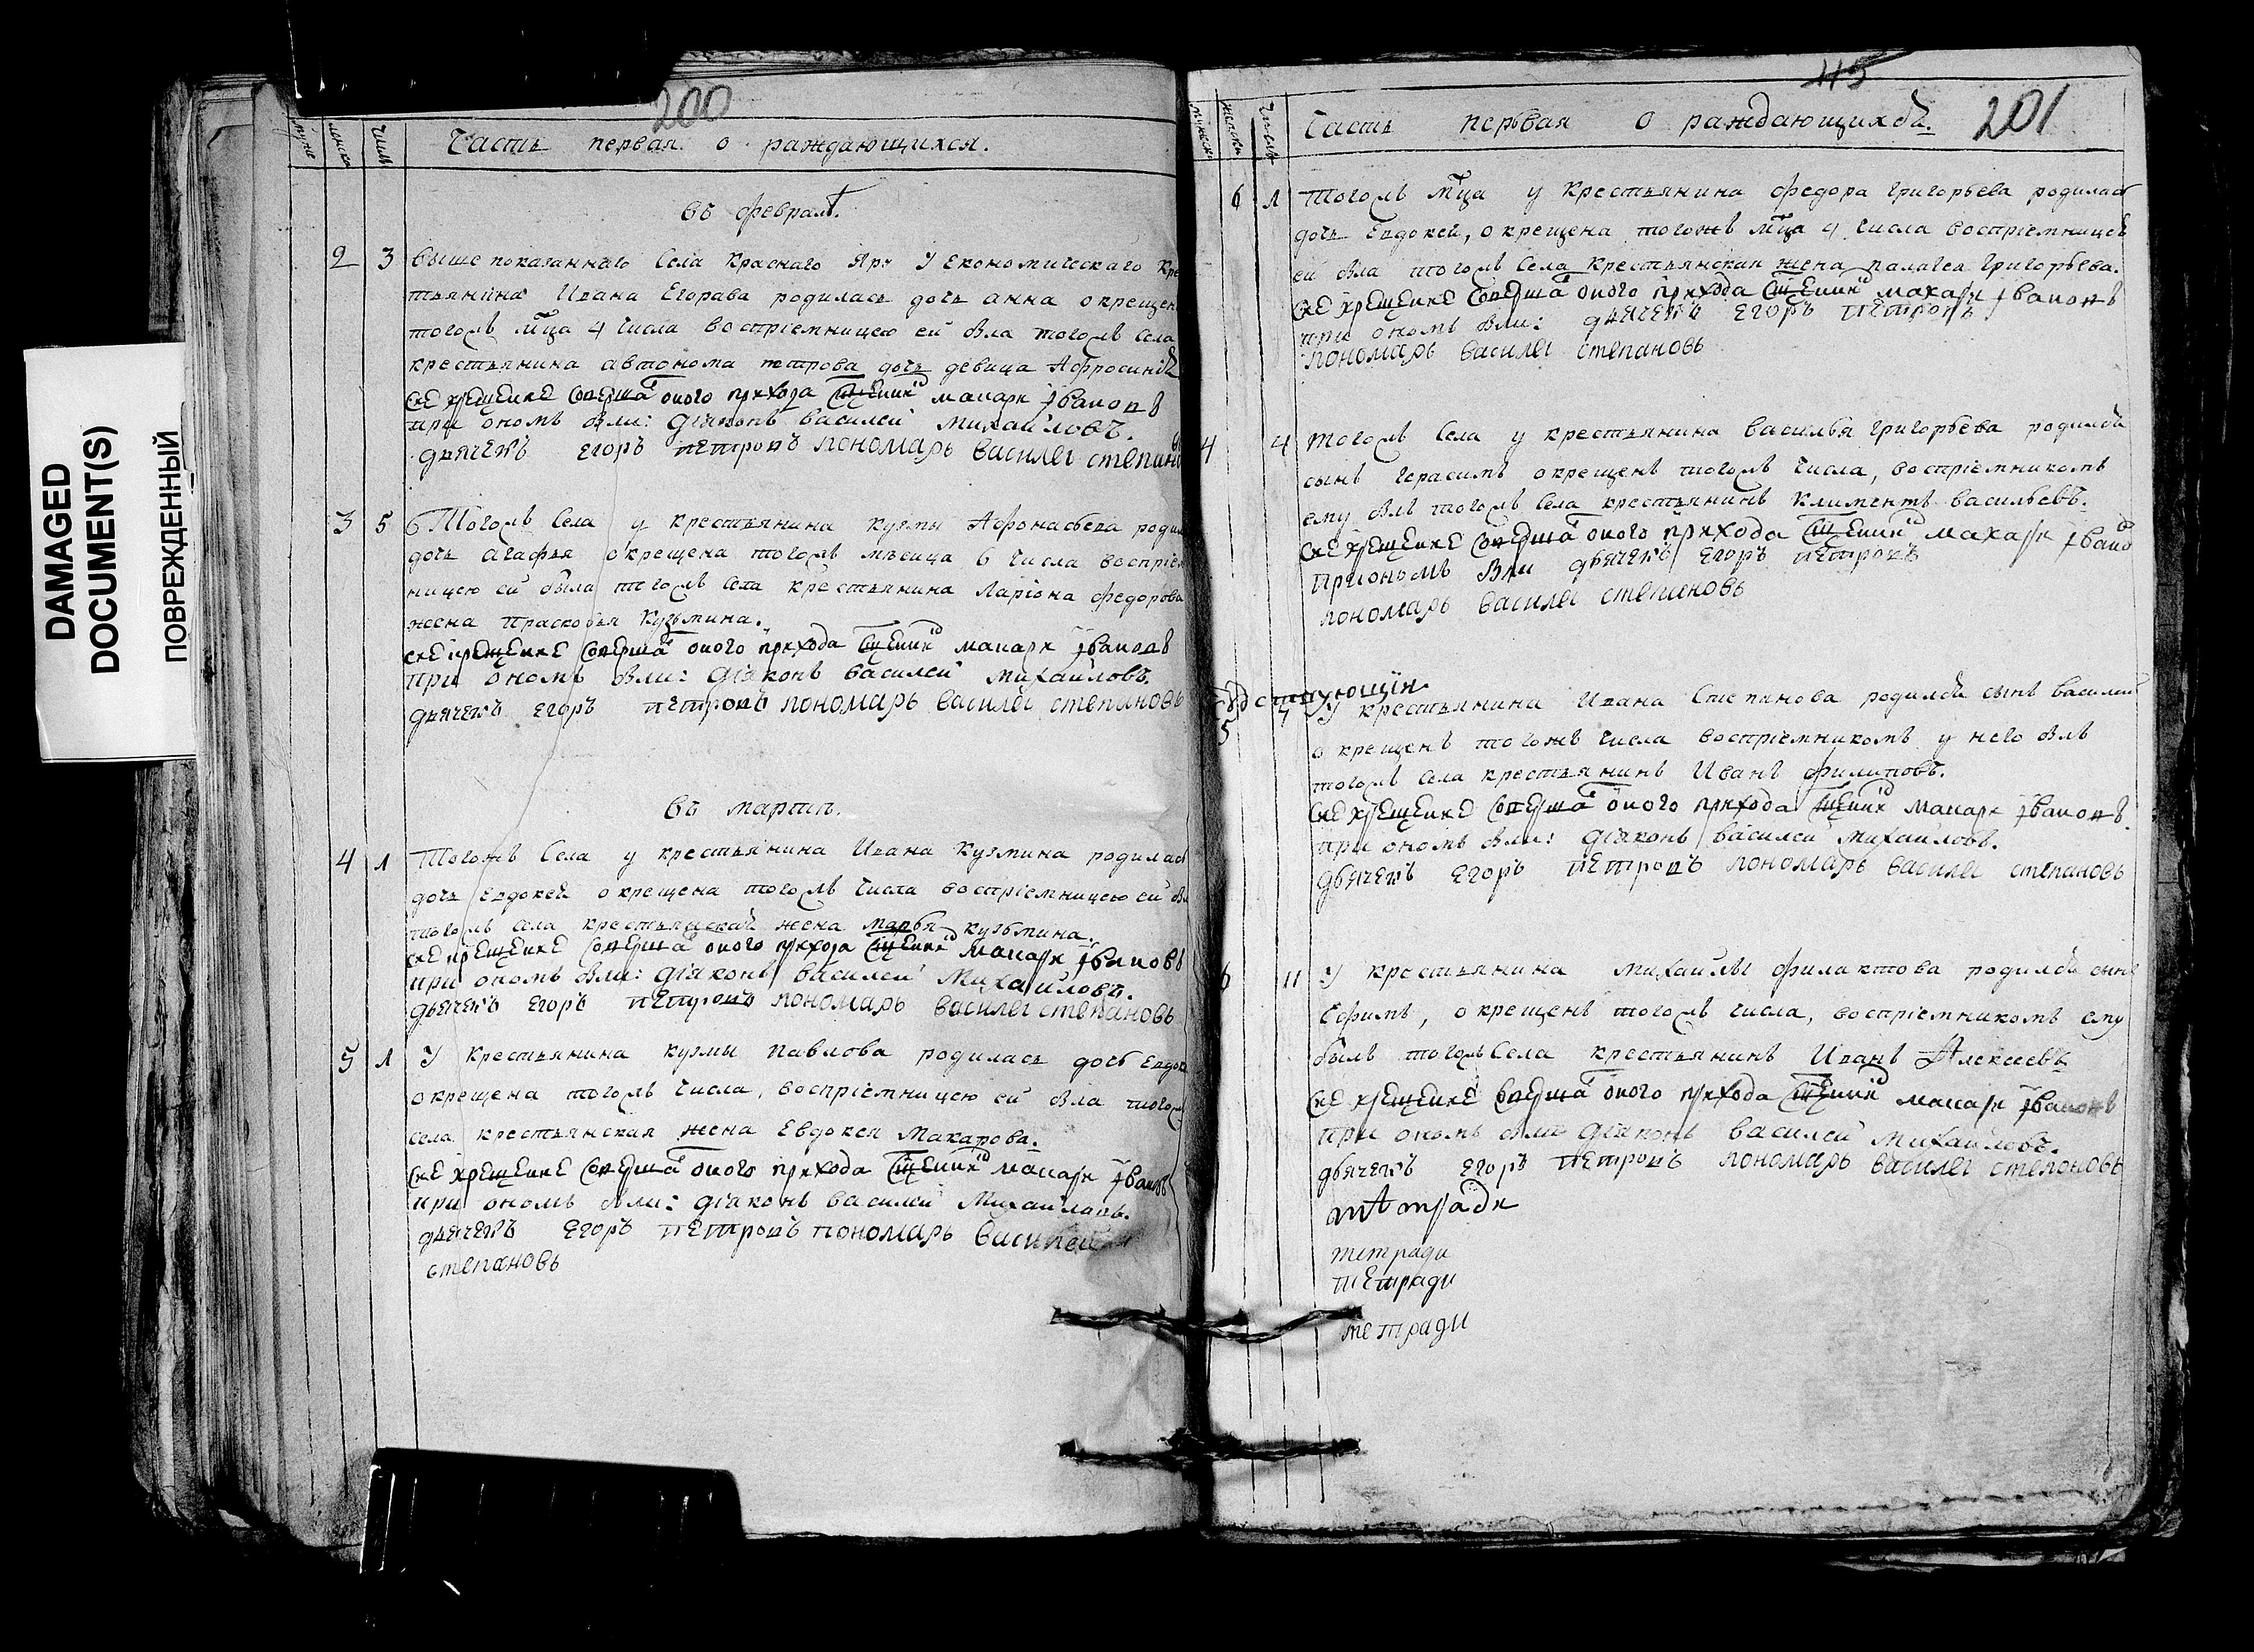 DAMAGED
DOCUMENT(S)
ПОВРЕЖДЕННЫЙ
200
муже женска числ
Часть первая о раждающихся.
въ февралѣ.
2 3 выше показаннаго Села Краснаго Яру У Економическаго Кре
тьянина Ивана Егорава родилась дочь анна окрещен
тогожъ мца 4 числа воспріемницею ей была тогожъ села
крестьянина автонома петрова дочь девица Афросинья
сие крещение соверша оного прихода сщеник макари Iванов
при ономъ были: діяконъ василей михаиловъ.
дьячекъ Егоръ Петровъ пономарь василеи степано
3 5 Тогожъ Села у крестьянина кузмы Афонасьева родил
дочь агафья окрещена тогожъ мъсица 6 числа воспріем
ницею ей была тогожъ села крестьянина Ларіона федорова
жена прасковья Кузьмина.
сие крещение соверша оного прихода сщеник макари Iванов
при ономъ были: діяконъ василей михаиловъ.
дьячекъ Егоръ Петровъ пономарь василеи степановъ
въ мартѣ.
4 1 Тогожъ Села у крестьянина Ивана Кузмина родилась
дочь Евдокея окрещена тогожъ числа воспріемницею ей бы
тогожъ села крестьянская жена марья кузьмина.
сие крещение соверша оного прихода сщеник макари Iванов
при ономъ были: діяконъ василей Михаиловъ.
дьячекъ Егоръ Петровъ пономарь василеи степановъ
5 1 У крестьянина кузмы павлова родилась дочь Евдок
окрещена тогожъ числа, воспріемницею ей была тогожъ
села крестьянская жена Евдокея Макарова.
сие крещение соверша оного прихода сщеник макари Iванов
при ономъ были: діяконъ василей Михаиловъ.
дьячекъ Егоръ Петровъ пономарь василеи
степановъ
45
201
мужеск женска числа
Часть первая о раждающихся.
6 1 Тогожъ мца у крестьянина федора григорьева родилась
дочь Евдокея, окрещена тогожъ мца 4 числа воспріемницею
ей была тогожъ села крестьянская жена палагея григорьева.
сие крещение соверша оного прихода сщеник макари Iванов
при ономъ были: дьячекъ Егоръ Петровъ
пономарь василеи степановъ
4 4 тогожъ села у крестьянина василья григорьева родился
сынъ герасимъ окрещенъ тогожъ числа, воспріемникомъ
ему былъ тогожъ села крестьянинъ климентъ васильевъ.
сие крещение соверша оного прихода сщеник макари Iвано
при ономъ были дьячекъ Егоръ Петровъ
пономарь василеи степановъ
5 7 У крестьянина Ивана Степанова родился сынъ василей
окрещенъ тогожъ числа воспріемникомъ у него былъ
тогожъ села крестьянинъ Иванъ филиповъ.
сие крещение соверша оного прихода сщеник макари Iванов.
при ономъ были: діяконъ василей михаиловъ.
дьячекъ Егоръ Петровъ пономарь василеи степановъ
6 11 У крестьянина михаилы филактова родился сынъ
Ефимъ, окрещенъ тогожъ числа, воспріемникомъ ему
былъ тогожъ села крестьянинъ Иванъ Алексеевъ
сие крещение соверша оного прихода сщеник макари Iванов
при ономъ были діяконъ василей михаиловъ.
дьячекъ Егоръ Петровъ пономарь василеи степоновъ
тѣтради
тетради
тетради
тетради